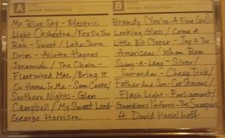 A
Mr. Blue Sky - Electric
Light Orchestra / Fox On The
Run - Sweet / Lake Shore
Drive - Aliotta Haynes
Jeremiah / The Chain -
Fleetwood Mac / Bring It
On Home To Me - Sam Cooke/
Southern Nights - Glen
Campbell / My Sweet Lord -
George Harrison
B
Brandy (You're A Fine Girl) -
Looking Glass / Come A
Little Bit Closer - Jay & The
Americans / Wham Bam
Shang-A-Lang - Silver /
Surrender - Cheap Trick /
Father And Son - Cat Stevens /
Flash Light - Parliament /
Guardians Inferno - The Sneepers
ft. David Hasselhoff